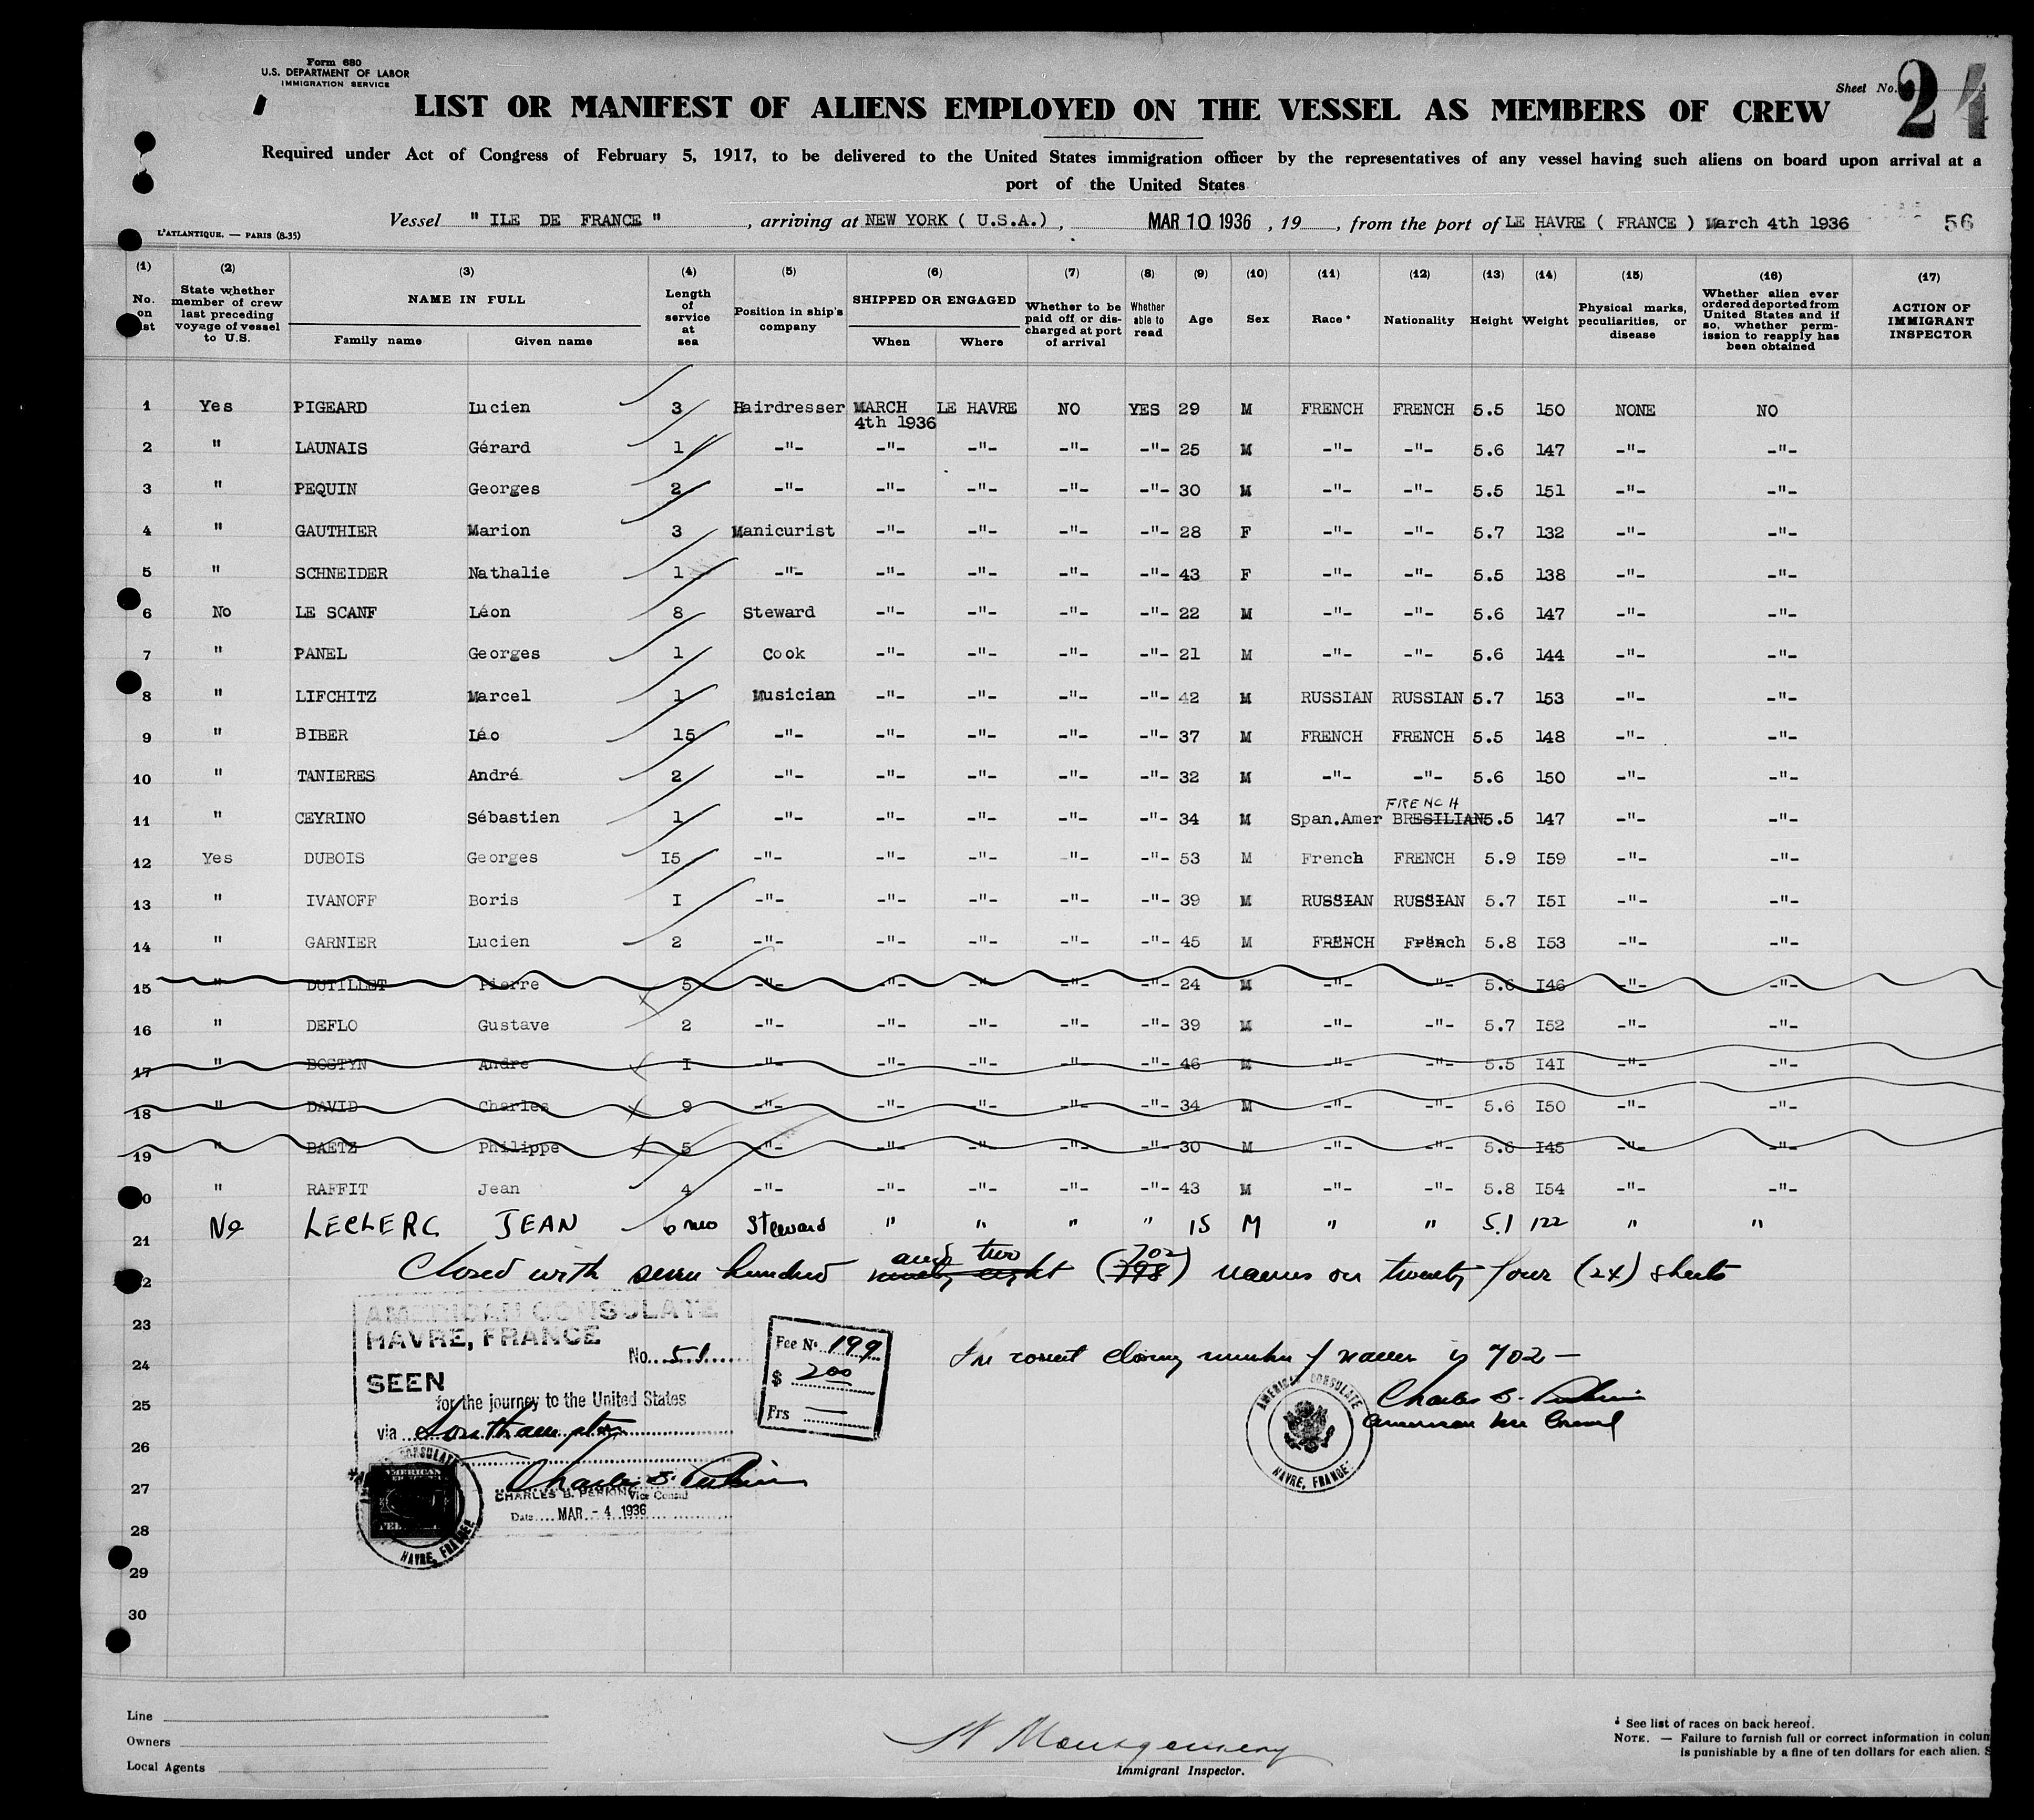 Form 680
U.S. DEPARTMENT OF LABOR
IMMIGRATION SERVICE
Sheet No. 24
LIST OR MANIFEST OF ALIENS EMPLOYED ON THE VESSEL AS MEMBERS OF CREW
Required under Act of Congress of February 5, 1917, to be delivered to the United States immigration officer by the representatives of any vessel having such aliens on board upon arrival at a
port of the United States
Vessel " ILE DE FRANCE " , arriving at NEW YORK ( U.S.A.) , MAR 10 1936 , 19 , from the port of LE HAVRE ( FRANCE ) March 4th 1936 56
L'ATLANTIQUE. — PARIS (8-35)
(1) No. on ist (2) State whether member of crew last preceding voyage of vessel to U.S. (3) NAME IN FULL Family name Given name (4) Length of service at sea (5) Position in ship's company (6) SHIPPED OR ENGAGED When Where (7) Whether to be paid off or discharged at port of arrival (8) Whether able to read (9) Age (10) Sex (11) Race * (12) Nationality (13) Height (14) Weight (15) Physical marks, peculiarities, or disease (16) Whether alien ever ordered deported from United States and if so, whether permission to reapply has been obtained (17) ACTION OF IMMIGRANT INSPECTOR
1 Yes PIGEARD Lucien 3 Hairdresser MARCH 4th 1936 LE HAVRE NO YES 29 M FRENCH FRENCH 5.5 150 NONE NO
2 " LAUNAIS Gérard 1 -"- -"- -"- -"- -"- 25 M -"- -"- 5.6 147 -"- -"-
3 " PEQUIN Georges 2 -"- -"- -"- -"- -"- 30 M -"- -"- 5.5 151 -"- -"-
4 " GAUTHIER Marion 3 Manicurist -"- -"- -"- -"- 28 F -"- -"- 5.7 132 -"- -"-
5 " SCHNEIDER Nathalie 1 -"- -"- -"- -"- -"- 43 F -"- -"- 5.5 138 -"- -"-
6 No LE SCANF Léon 8 Steward -"- -"- -"- -"- 22 M -"- -"- 5.6 147 -"- -"-
7 " PANEL Georges 1 Cook -"- -"- -"- -"- 21 M -"- -"- 5.6 144 -"- -"-
8 " LIFCHITZ Marcel 1 Musician -"- -"- -"- -"- 42 M RUSSIAN RUSSIAN 5.7 153 -"- -"-
9 " BIBER Léo 15 -"- -"- -"- -"- -"- 37 M FRENCH FRENCH 5.5 148 -"- -"-
10 " TANIERES André 2 -"- -"- -"- -"- -"- 32 M -"- -"- 5.6 150 -"- -"-
11 " CEYRINO Sébastien 1 -"- -"- -"- -"- -"- 34 M Span.Amer FRENCH BRESILIAN 5.5 147 -"- -"-
12 Yes DUBOIS Georges I5 -"- -"- -"- -"- -"- 53 M French FRENCH 5.9 I59 -"- -"-
13 " IVANOFF Boris I -"- -"- -"- -"- -"- 39 M RUSSIAN RUSSIAN 5.7 I5I -"- -"-
14 " GARNIER Lucien 2 -"- -"- -"- -"- -"- 45 M FRENCH French 5.8 I53 -"- -"-
15 " DUTILLET Pierre 5 -"- -"- -"- -"- -"- 24 M -"- -"- 5.6 I46 -"- -"-
16 " DEFLO Gustave 2 -"- -"- -"- -"- -"- 39 M -"- -"- 5.7 I52 -"- -"-
17 " BOSTYN Andre I -"- -"- -"- -"- -"- 46 M -"- -"- 5.5 I4I -"- -"-
18 " DAVID Charles 9 -"- -"- -"- -"- -"- 34 M -"- -"- 5.6 I50 -"- -"-
19 " BAETZ Philippe 5 -"- -"- -"- -"- -"- 30 M -"- -"- 5.6 I45 -"- -"-
20 " RAFFIT Jean 4 -"- -"- -"- -"- -"- 43 M -"- -"- 5.8 I54 -"- -"-
21 No LECLERC JEAN 6 mo Steward " " " " 15 M " " 5.1 122 " "
and two 702
22 Closed with seven hundred ninety eight (798) names on twenty four (24) sheets
AMERICAN CONSULATE
23 HAVRE, FRANCE
No. 51
Fee No. 199
24 The correct closing number of names is 702 —
SEEN
$ 2.00
for the journey to the United States
25 Charles B. Perkins
Frs —
American Vice Consul
via Southampton
AMERICAN CONSULATE HAVRE, FRANCE
26
27 Charles B. Perkins
CHARLES B. PERKINS Vice Consul
Date MAR - 4 1936
AMERICAN CONSULATE HAVRE, FRANCE
28
29
30
Line
Owners
Local Agents
Montgomery
Immigrant Inspector.
* See list of races on back hereof.
NOTE. — Failure to furnish full or correct information in colum
is punishable by a fine of ten dollars for each alien. S